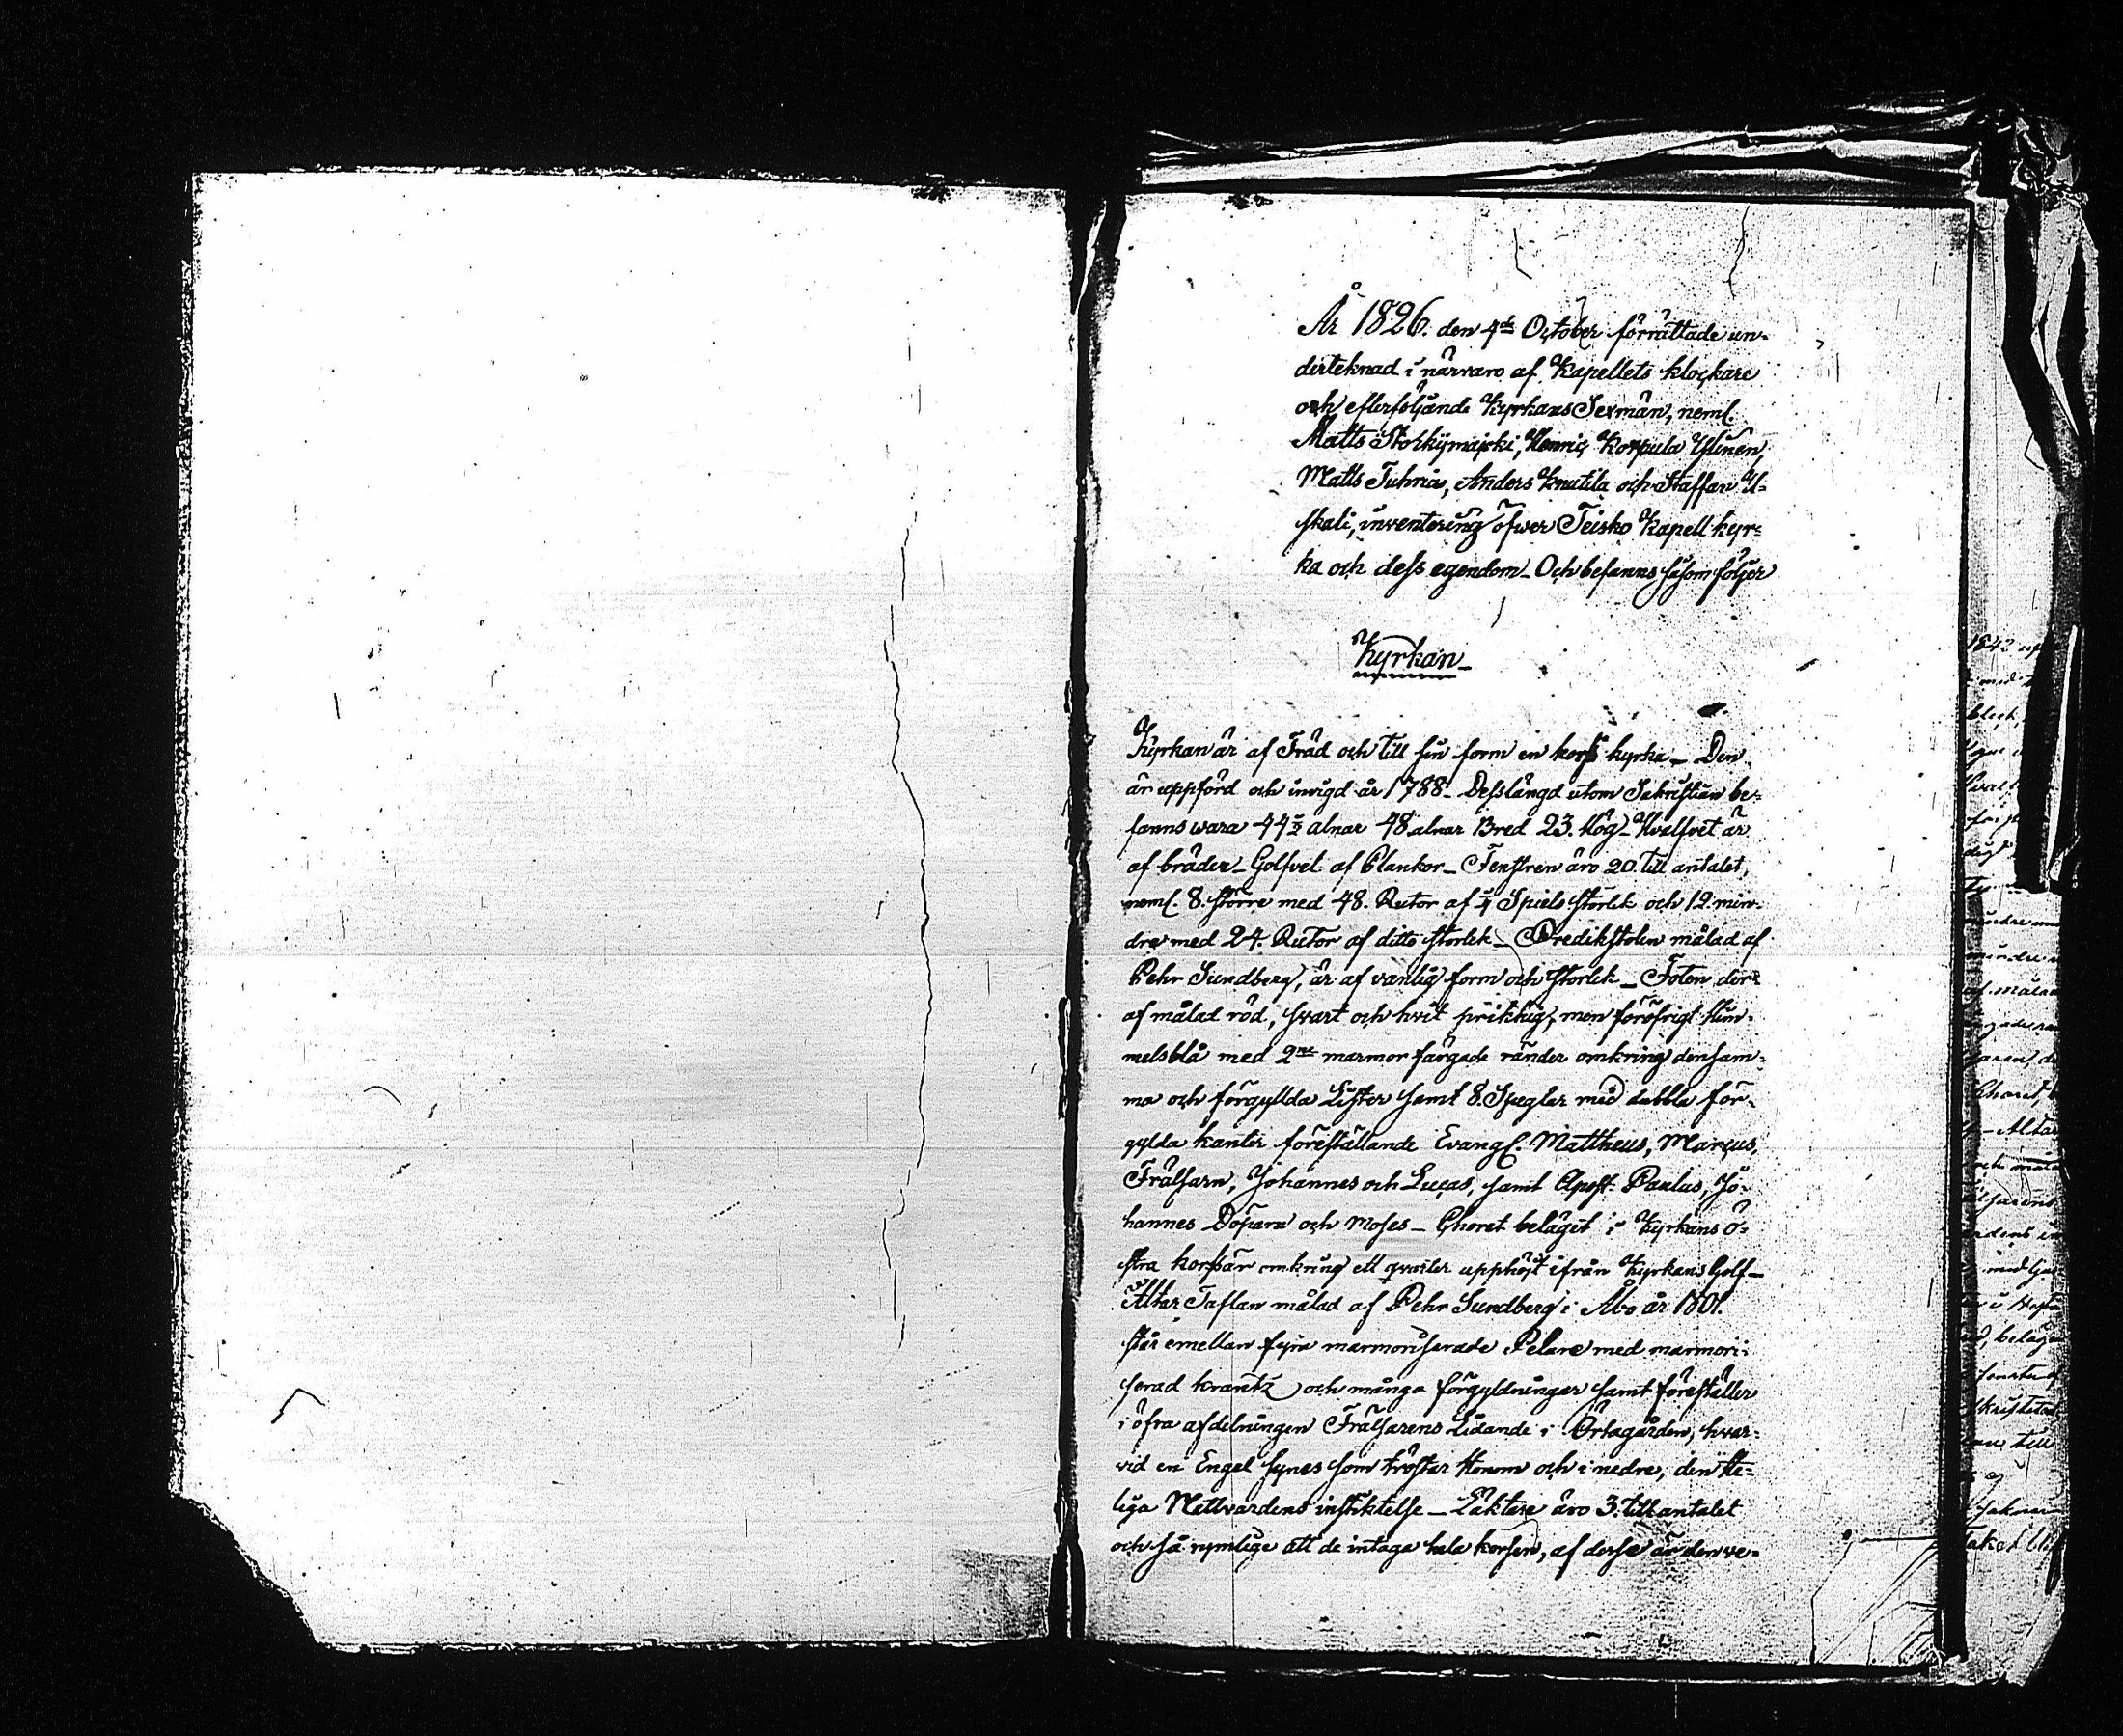 År 1826. den 4de October förrättade un-
derteknad i närvaro af Kapellets klockare
och efterföljande Kyrkans Sexmän, neml.
Matts Henric Korpula Ylinen,
Matts Tuhria, Anders Knutila och Staffan U-
skali, inventering öfwer Teisko Kapell kyr-
ka och dess egendom_ Och befanns såsom följer
Kyrkan_
Kyrkan är af Träd och till sin form en kors kyrka_ Den
är uppförd och invigd år 1788_ Dess längd utom Sakristian be-
fanns wara 44½ alnar 48 alnar Bred 23. Hög_ Hvalfvet är
af bräder_ Golfvet af Plankor_ Fenstren äro 20 till antalet,
neml. 8. större med 48. Rutor af ¼ Spiels storlek och 12. min-
dre med 24. Rutor af ditto storlek_ Predikstolen målad af
Pehr Sundberg, är af vanlig form och storlek_ Foten der-
af målad röd, svart och hvit prikkig, men för öfrigt Him-
melsblå med 2ne marmor färgade ränder omkring densam-
ma och förgyllda Lister samt 8. Speglar med dubbla för-
gylda kanter föreställande Evangl. Mattheus, Marcus,
Frälsarn, Johannes och Lucas, samt Apost. Paulus, Jo-
hannes Döpare och Moses_ Choret beläget i Kyrkans ö-
stra kors är omkring ett qvarter upphöjt ifrån Kyrkans Golf_
Altar Taflan målad af Pehr Sundberg i Åbo år 1801.
står emellan fyra marmoriserade Pelare med marmori-
serad krantz och många förgyldningar samt föreställer
i öfra afdelningen Frälsarens Lidande i Örtagården, hvar-
vid en Engel synes som tröstar Honom och i nedre, den He-
liga Nattvardens instiktelse_ Läktare äro 3. till antalet
och så rymlige att de intaga hela korsen, af desse är den ve-